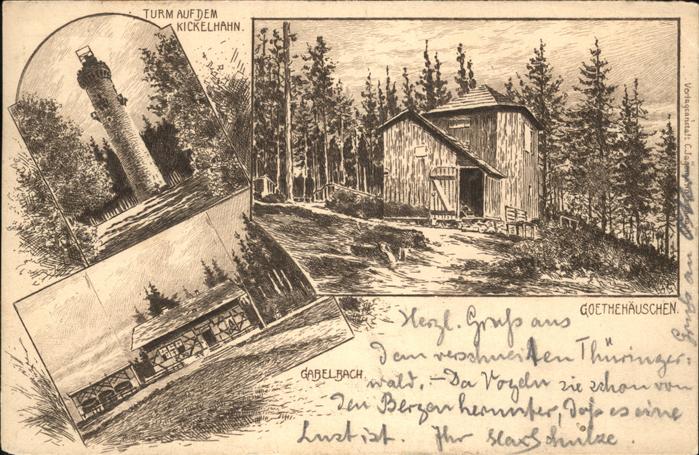 TURM AUF DEM
KICKELHAHN.
GOETHEHÄUSCHEN.
GABELBACH.
Herzl. Gruß aus
dem verschneiten Thüringer-
wald. – Da Vogeln sie schon von
den Bergen herunter, daß es eine
Lust ist. Ihr Max Schulze.
Verlagsanstalt